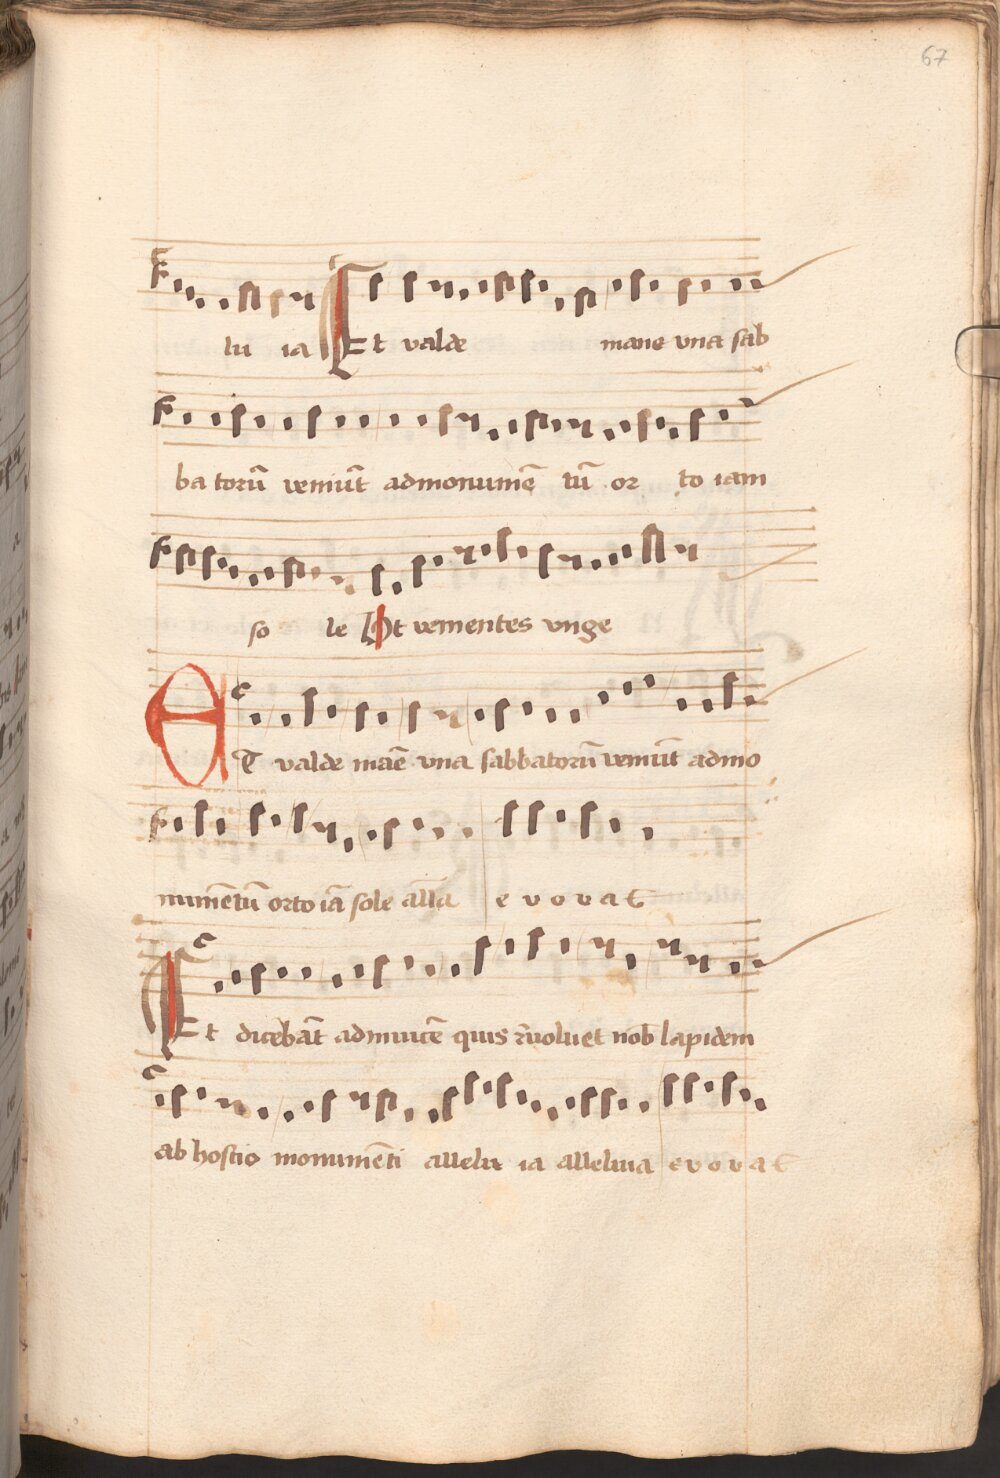 67
lu ia Et valde mane vna sab
ba torū veniūt admonumē tū or to iam
so le Ut venientes vnge
ET valde māe vna sabbatorū veniūt admo
numētū orto iā sole allā e v o v a e
Et dicebāt adinuicē quis r̄uoluet nob̄ lapidem
ab hostio monumēti allelu ia alleluia e v o v a e